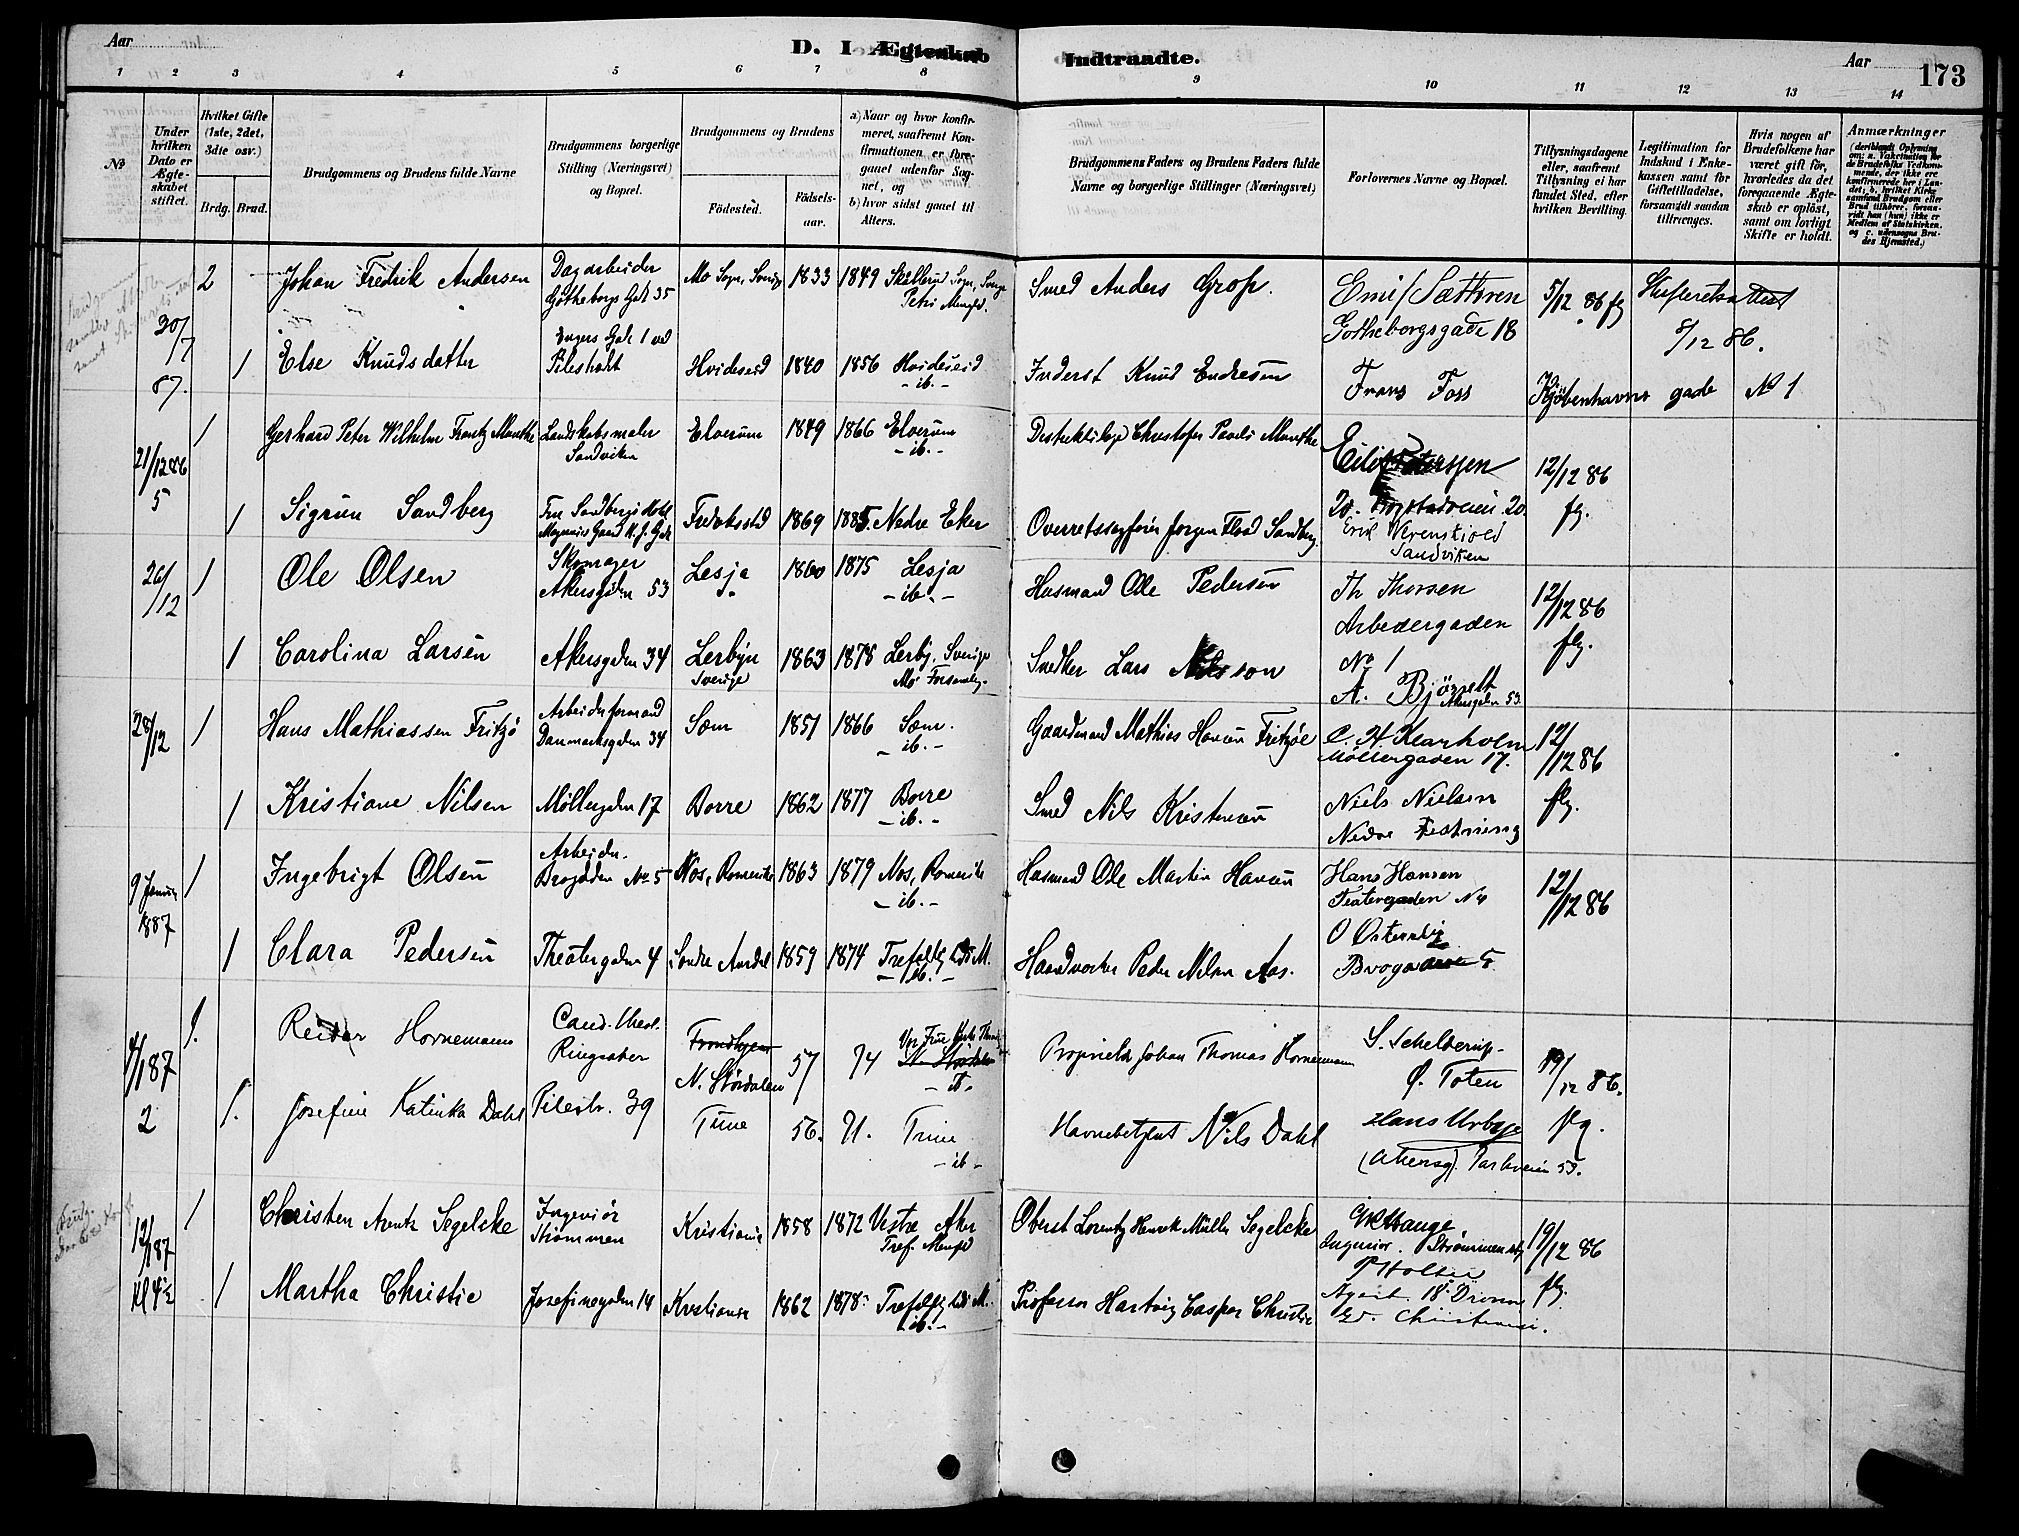 Aar
D. I Ægteskab
Indtraadte.
Aar
173
1 2 3 4 5 6 7 8 9 10 11 12 13 14
No
Under hvilken Dato er Ægteskabet stiftet.
Hvilket Gifte (1ste, 2det, 3die osv.)
Brdg. Brud.
Brudgommens og Brudens fulde Navne
Brudgommens borgerlige Stilling (Næringsvei) og Bopæl.
Brudgommens og Brudens
Fødested.
Fødselsaar.
a) Naar og hvor konfirmeret, saafremt Konfirmationen er foregaaet udenfor Sognet, og
b) hvor sidst gaaet til Alters.
Brudgommens Faders og Brudens Faders fulde Navne og borgerlige Stillinger (Næringsvei)
Forlovernes Navne og Bopæl.
Tillysningsdagene eller, saafremt Tillysning ei har fundet Sted, efter hvilken Bevilling.
Legitimation for Indskud i Enkekassen samt for Giftetilladelse, forsaavidt saadan tiltrænges.
Hvis nogen af Brudefolkene har været gift før, hvorledes da det foregaaende Ægteskab er opløst, samt om lovligt Skifte er holdt.
Anmærkninger
2 Johan Fredrik Andersen Dagarbeider Gøtheborgs Gade 35 Mo Sogn, Sverige 1833 1849 Skållerud Sogn, Sverige Petri Menighed. Smed Anders Grop. Emil Sættren Gotheborgsgade 18 5/12 86 flg Skifteretsattest 8/12 86.
30/7 87. 1 Else Knudsdatter Engers Gade 1 ved Pilestrædet Hvideseid 1840 1856 Hvideseid -ib.- Inderst Knud Endresen Frans Foss Kjøbenhavns gade No 1
21/12 86 5 1 Gerhard Peter Wilhelm Frantz Munthe Landskabsmaler Sandviken Elverum 1849 1866 Elverum -ib.- Distriktslæge Christofer Pavels Munthe Eilif Peterssen 12/12 86
1 Sigrun Sandberg Fredrikstad 1869 1885 Nedre Eker Overretssagfører Jørgen Flood Sandberg 20. 20 Erik Werenskiold Sandviken flg.
26/12 1 Ole Olsen Skomager Akersgaden 53 Lesja 1860 1875 Lesja -ib.- Husmand Ole Pedersen Th Thorsen Arbedergaden No 1 12/12 86 flg.
1 Carolina Larsen Akersgaden 34 Lerbyn Sverige 1863 1878 Lerby, Sverige Snedker Lars Nilsson A. Bjørselt Akersgaden 53.
28/12 1 Hans Mathiassen Fritzø Arbeidsformand Danmarksgaden 34 Sæm 1851 1866 Sæm. -ib.- Gaardmand Mathias Hansen Fritzøe C. H. Klarholm Møllergaden 17. 12/12 86
1 Kristiane Nilsen Møllergaden 17 Borre 1862 1877 Borre -ib.- Smed Nils Kristensen Niels Nielsen Nedre Festning flg.
9 Januar 1887 1 Ingebrigt Olsen Arbeider. Brogaden No 5 Næs, Romerike 1863 1879 Næs, Romerike -ib.- Husmand Ole Martin Hansen Hans Hansen Teatergaden No 4 12/12 86
1 Clara Pedersen Theatergaden 4 Søndre Aurdal 1859 1874 Trefoldigheds M. -ib.- Haandverker Peder Nilsen Aas. O Østensvig Brogaden 5
4/1 87 2 1. Reidar Hornemann Cand. theol. Ringsaker Trondhjem N. Størdalen 57 74 Vor Frue Kirke Throndhjem N. Størdalen -ib- Proprietær Johan Thomas Hornemann S. Schelderup Ø. Toten 19/12 86.
1. Josefine Katinka Dahl Pilestr. 39 Tune 56. 71. Tune -ib- Havnebetjent Nils Dahl Hans Urbye (Akersg). Parkveien 53. flg.
12/1 87 Kl 4½ 1 Christen Arentz Segelcke Ingeniør Strømmen Kristiania 1858 1872 Vestre Aker Tref. Menighed Oberst Lorentz Henrik Müller Segelcke Hauge. Ingeniør. Strømmen st. 19/12 86
1 Martha Christie Josefinegaden 14 Kristiania 1862 1878 Trefoldigheds M. -ib.- Professor Hartvig Caspar Christie P Holter Agent 18 Dronn Ed. Christiania. flg.